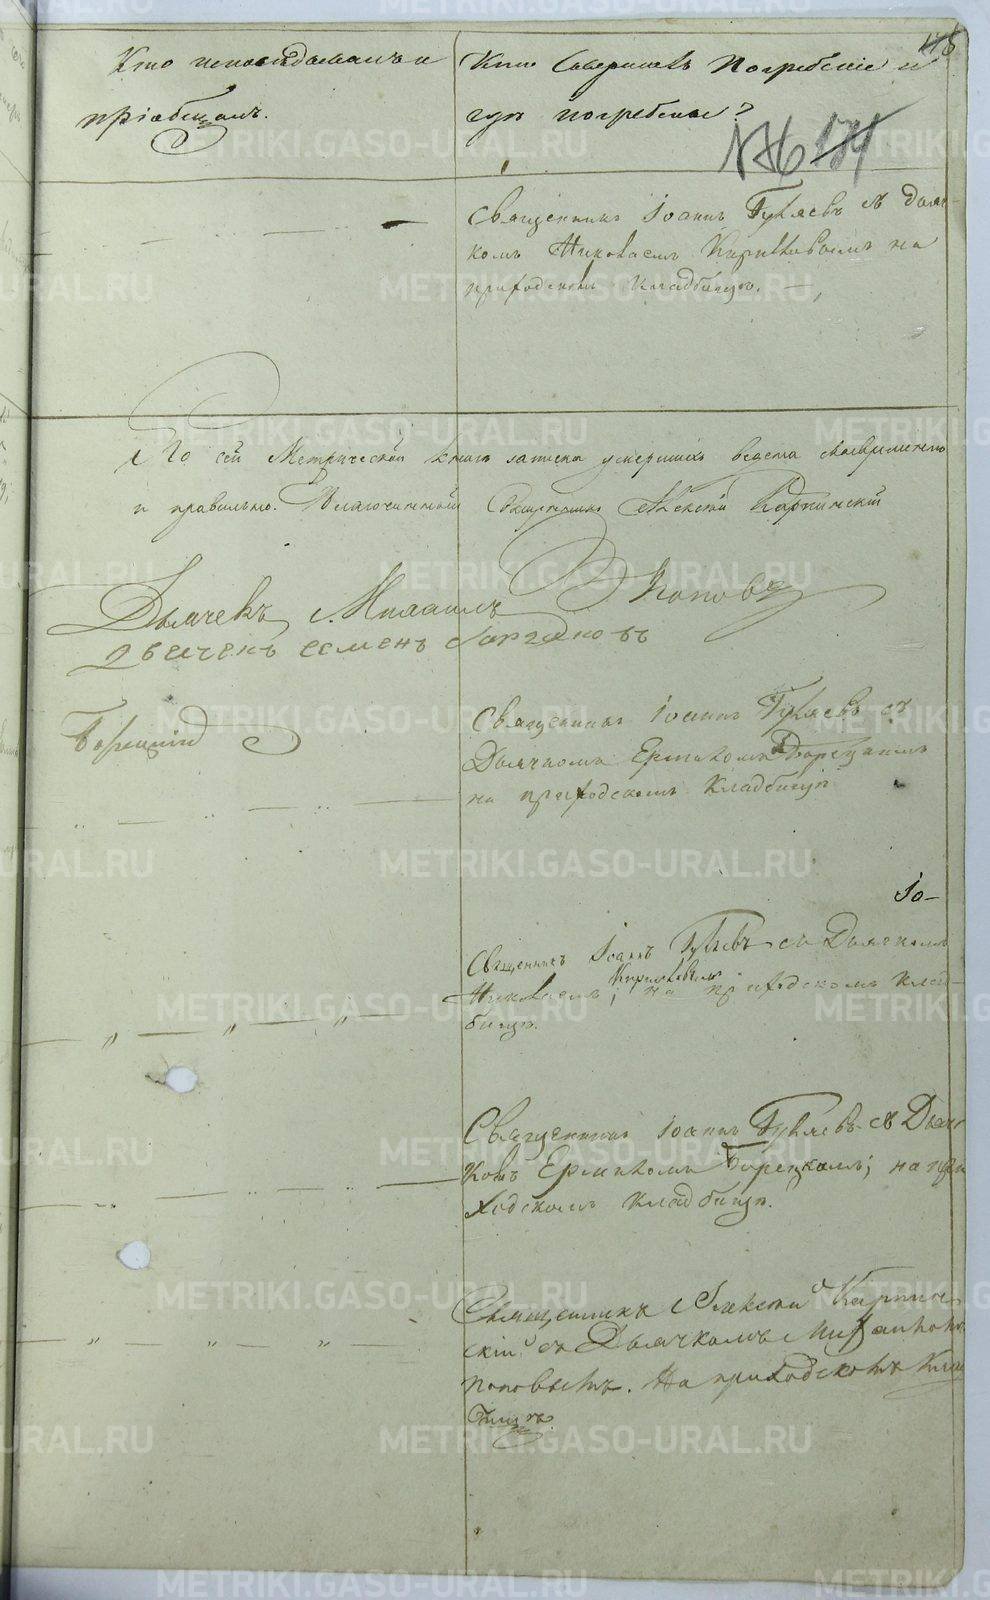 118
Кто исповѣдывалъ и
пріобщалъ.
Кто совершалъ Погребеніе и
гдѣ погребены?
Священникъ Іоаннъ Гуляевъ съ Дьяч-
комъ Николаемъ Кириловымъ на
приходскомъ кладбищѣ.
По сей Метрической книгѣ записка умершихъ ведена своевременно
и правильно. Благочинный Священникъ Алексѣй Карпинскій
Дьячекъ Михаилъ Поповъ
дьячекъ семенъ
Борецкій
Священникъ Іоаннъ Гуляевъ съ
Дьячкомъ Ермиломъ Борецкимъ
на приходскомъ кладбищѣ
Іо-
Священникъ Іоаннъ Гуляевъ съ Дьячкомъ
Николаемъ Кириловымъ; на приходскомъ клад-
бищѣ.
Священникъ Іоаннъ Гуляевъ съ Дьяч
комъ Ермиломъ Борецкомъ; на при
ходскомъ кладбищѣ.
Священникъ Алексѣй Карпин-
скій съ Дьячкомъ
Поповымъ. На приходскомъ клад
бищѣ.
METRIKI.GASO-URAL.RU